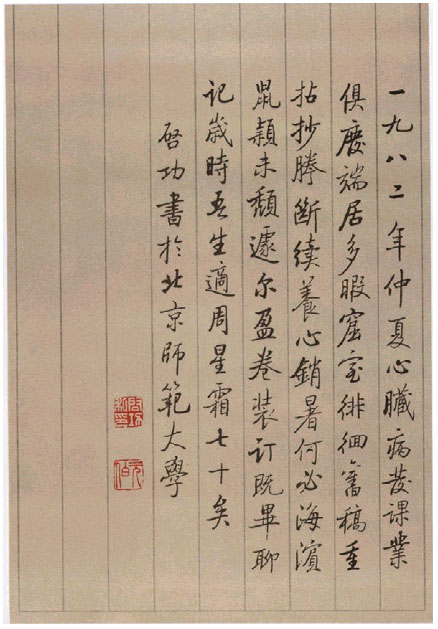 一九八二年仲夏心臟病發课業
俱廢端居多暇窟室徘徊舊稿重
拈抄謄斷續養心銷暑何必海濱
鼠穎未頹遽尔盈卷装订既畢聊
记歲時吾生適周星霜七十矣
啓功書於北京師範大學
啓功
元伯